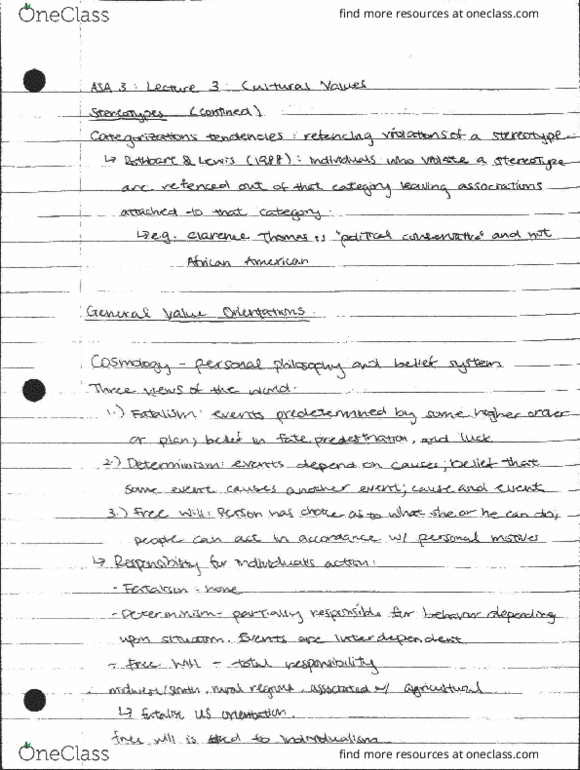 OneClass
find more resources at oneclass.com
ASA 3: Lecture 3: Cultural Values
Stereotypes (contined)
Categorizations tendencies: refencing violations of a stereotype
↳ Rothbart & Lewis (1988): individuals who violate a stereotype
are refenced out of that category leaving associations
attached to that category.
↳ e.g. Clarence Thomas is "political conservative" and not
African American
General Value Orientations.
Cosmology - personal philosophy and belief system
Three views of the world:
1.) Fatalism: events predetermined by some higher order
or plan; belief in fate, predestination, and luck
2.) Determinism: events depend on causes; belief that
some event causes another event; cause and event
3.) Free Will: Person has choice as to what she or he can do;
people can act in accordance w/ personal motives
↳ Responsibility for individual's action:
- Fatalism - none
- Determinism - partially responsible for behavior depending
upon situation. Events are interdependent
- Free Will - total responsibility
midwest/south, rural regions, associated w/ agricultural
↳ fatalistic US orientation.
free will is tied to individualism
OneClass
find more resources at oneclass.com